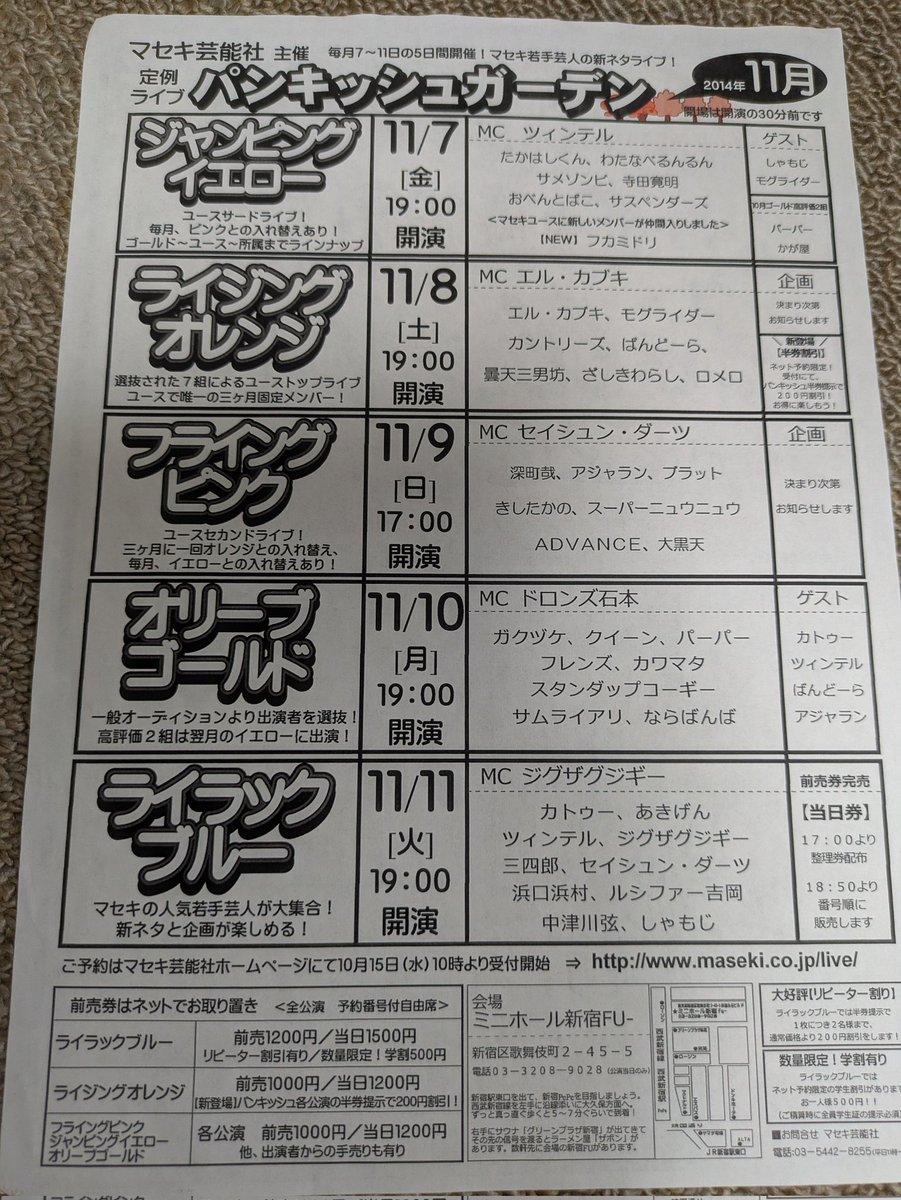 マセキ芸能社 主催 毎月7～11日の5日間開催！マセキ若手芸人の新ネタライブ！
定例ライブ パンキッシュガーデン 2014年 11月
開場は開演の30分前です
ジャンピングイエロー
ユースサードライブ！
毎月、ピンクとの入れ替えあり！
ゴールド～ユース～所属までラインナップ
11/7
[金]
19:00
開演
MC ツィンテル
たかはしくん、わたなべるんるん
サメゾンビ、寺田寛明
おべんとばこ、サスペンダーズ
<マセキユースに新しいメンバーが仲間入りしました>
【NEW】フカミドリ
ゲスト
しゃもじ
モグライダー
10月ゴールド高評価2組
パーパー
かが屋
ライジングオレンジ
選抜された7組によるユーストップライブ
ユースで唯一の三ヶ月固定メンバー！
11/8
[土]
19:00
開演
MC エル・カブキ
エル・カブキ、モグライダー
カントリーズ、ばんどーら、
曇天三男坊、ざしきわらし、ロメロ
企画
決まり次第
お知らせします
＼ 新登場 ／
【半券割引】
ネット予約限定！
受付にて、
パンキッシュ半券提示で
200円割引！
お得に楽しもう！
フライングピンク
ユースセカンドライブ！
三ヶ月に一回オレンジとの入れ替え、
毎月、イエローとの入れ替えあり！
11/9
[日]
17:00
開演
MC セイシュン・ダーツ
深町哉、アジャラン、ブラット
きしたかの、スーパーニュウニュウ
ADVANCE、大黒天
企画
決まり次第
お知らせします
オリーブゴールド
一般オーディションより出演者を選抜！
高評価2組は翌月のイエローに出演！
11/10
[月]
19:00
開演
MC ドロンズ石本
ガクヅケ、クイーン、パーパー
フレンズ、カワマタ
スタンダップコーギー
サムライアリ、ならばんば
ゲスト
カトゥー
ツィンテル
ばんどーら
アジャラン
ライラックブルー
マセキの人気若手芸人が大集合！
新ネタと企画が楽しめる！
11/11
[火]
19:00
開演
MC ジグザグジギー
カトゥー、あきげん
ツィンテル、ジグザグジギー
三四郎、セイシュン・ダーツ
浜口浜村、ルシファー吉岡
中津川弦、しゃもじ
前売券完売
【当日券】
17:00より
整理券配布
18:50より
番号順に
販売します
ご予約はマセキ芸能社ホームページにて10月15日（水）10時より受付開始 ⇒ http://www.maseki.co.jp/live/
前売券はネットでお取り置き ＜全公演 予約番号付自由席＞
ライラックブルー
前売1200円／当日1500円
リピーター割引有り／数量限定！学割500円
ライジングオレンジ
前売1000円／当日1200円
【新登場】パンキッシュ各公演の半券提示で200円割引！
フライングピンク
ジャンピングイエロー
オリーブゴールド
各公演 前売1000円／当日1200円
他、出演者からの手売りも有り
会場
ミニホール新宿FU-
新宿区歌舞伎町2-45-5
電話03-3208-9028（公演当日のみ）
新宿駅東口を出て、新宿PePeを目指しましょう。
西武新宿線を左手に沿線沿いに大久保方面へ。
ずっと真っ直ぐ歩くと5～7分ぐらいで到着！
右手にサウナ「グリーンプラザ新宿」が出てきて
その先の信号を渡るとラーメン屋「ザボン」が
あります。数軒先に会場の新宿FUがあります。
西武新宿線
西武新宿駅
PePe
★ミニホール新宿FU-
グリーンプラザ
ローソン
ドンキホーテ
ALTA
JR新宿東口
大好評【リピーター割り】
ライラックブルーでは半券提示で
1枚につき2名様まで、
通常価格より200円割引をします！
数量限定！学割有り
ライラックブルーでは
ネット予約限定の学生割引があります
お一人様500円！！
（ご精算時に全員学生証の提示必須）
■お問合せ マセキ芸能社
電話:03-5442-8255